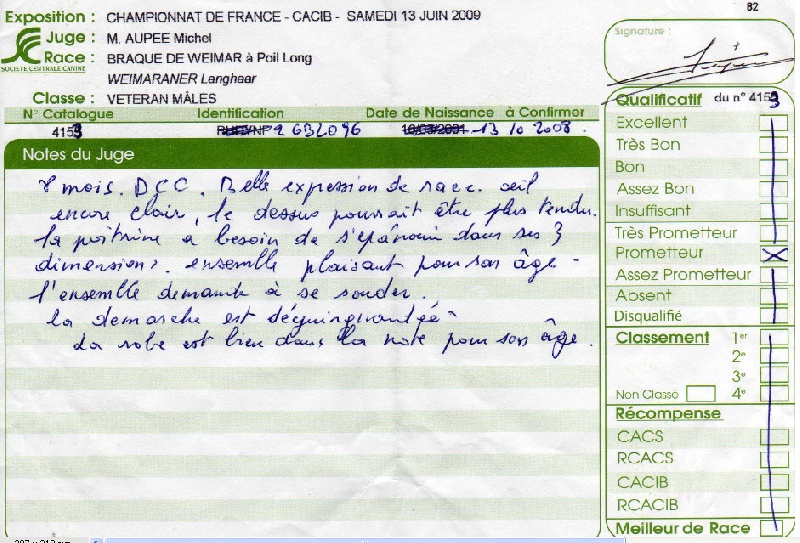 82
Exposition : CHAMPIONNAT DE FRANCE - CACIB - SAMEDI 13 JUIN 2009
Juge : M. AUPEE Michel
Race : BRAQUE DE WEIMAR à Poil Long
SOCIÉTÉ CENTRALE CANINE
WEIMARANER Langhaar
Classe : VETERAN MÂLES
N° Catalogue Identification Date de Naissance à Confirmer
4153 2 632096 10/03/2001 13 10 2008.
Notes du Juge
8 mois. DCC. Belle expression de race. œil
encore clair, le dessus pourrait être plus tendu.
la poitrine a besoin de s'épanouir dans ses 3
dimensions. ensemble plaisant pour son âge -
l'ensemble demande à se souder.
la démarche est déguingandée -
La robe est bien dans la note pour son âge.
Signature :
Qualificatif du n° 4153
Excellent
Très Bon
Bon
Assez Bon
Insuffisant
Très Prometteur
Prometteur
Assez Prometteur
Absent
Disqualifié
Classement 1er
2e
3e
Non Classé 4e
Récompense
CACS
RCACS
CACIB
RCACIB
Meilleur de Race